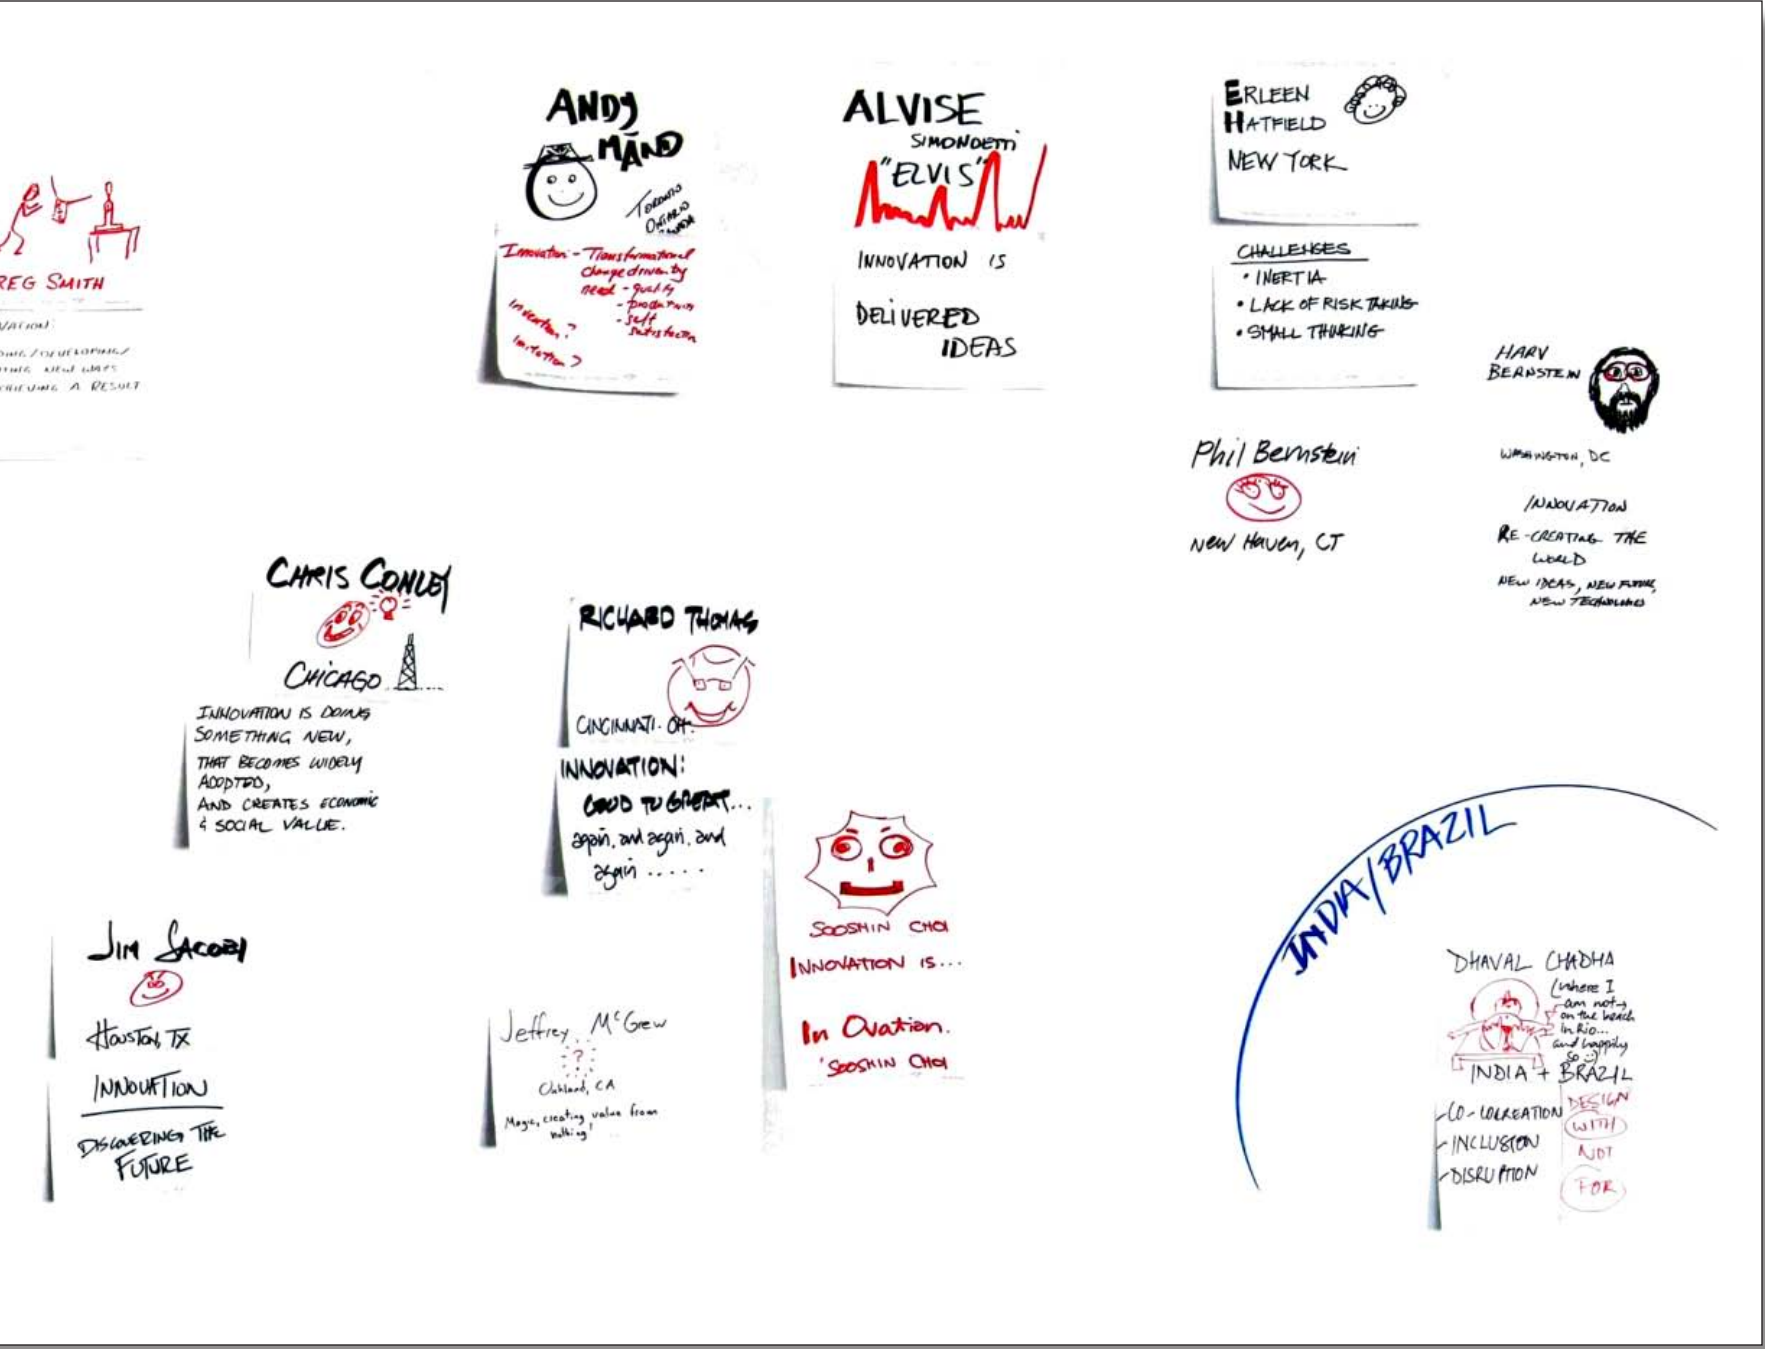 REG SMITH
VATION:
DING/DEVELOPING/
NEW WAYS
CHIEVING A RESULT
ANDY
MĀND
TORONTO
ONTARIO
Innovation - Transformational
change driven by
need - quality
- self
satisfaction
Invention?
Imitation?
ALVISE
SIMONDETTI
"ELVIS"
INNOVATION IS
DELIVERED
IDEAS
ERLEEN
HATFIELD
NEW YORK
CHALLENGES
• INERTIA
• LACK OF RISK TAKING
• SMALL THINKING
HARV
BERNSTEIN
WASHINGTON, DC
INNOVATION
RE-CREATING THE
WORLD
NEW IDEAS, NEW FUTURE,
NEW TECHNOLOGIES
Phil Bernstein
New Haven, CT
CHRIS CONLEY
CHICAGO
INNOVATION IS DOING
SOMETHING NEW,
THAT BECOMES WIDELY
ADOPTED,
AND CREATES ECONOMIC
& SOCIAL VALUE.
RICHARD THOMAS
CINCINNATI. OH.
INNOVATION:
GOOD TO GREAT...
again, and again, and
again .....
SOOSHIN CHOI
INNOVATION IS...
In Ovation.
SOOSHIN CHOI
JIM JACOBI
HOUSTON, TX
INNOVATION
DISCOVERING THE
FUTURE
Jeffrey McGrew
?
Oakland, CA
Magic, creating value from
nothing!
INDIA/BRAZIL
DHAVAL CHADHA
(where I
am not→
on the beach
in Rio...
and happily
so :)
INDIA + BRAZIL
- CO-CORREATION
- INCLUSION
- DISRUPTION
DESIGN
WITH
NOT
FOR